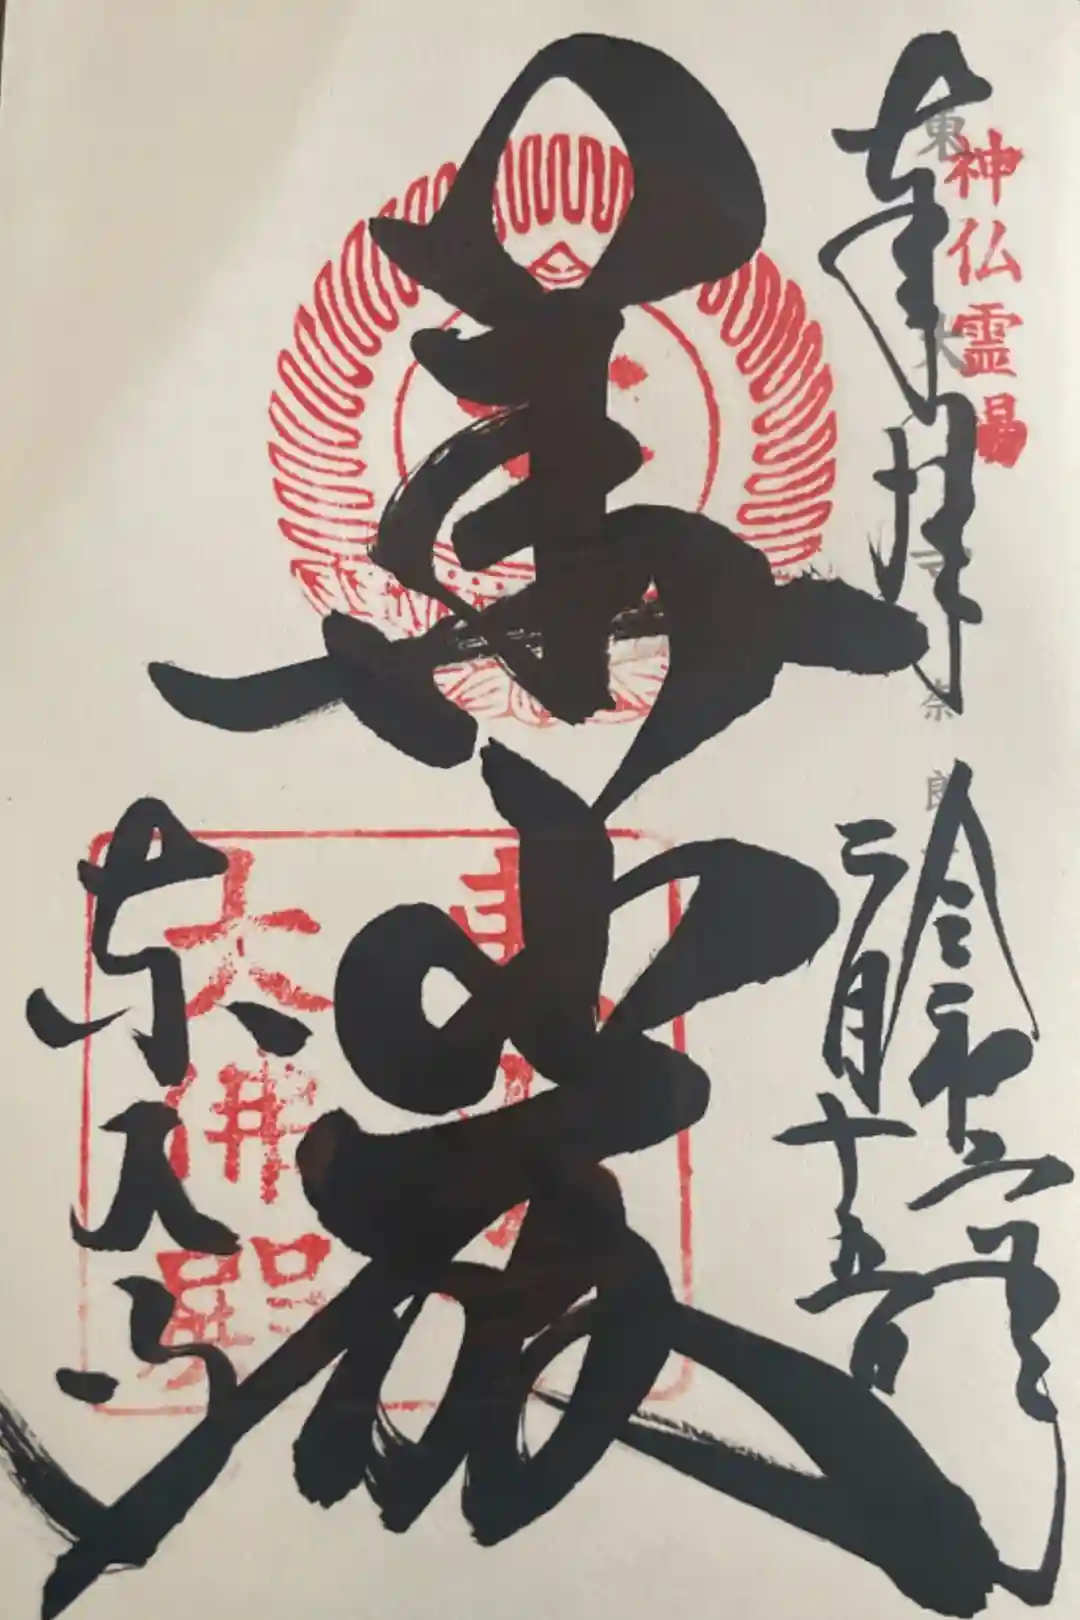 神仏霊場
奉拝
令和 年
二月十五日
華厳
東大寺
東 大 奈良
大佛殿